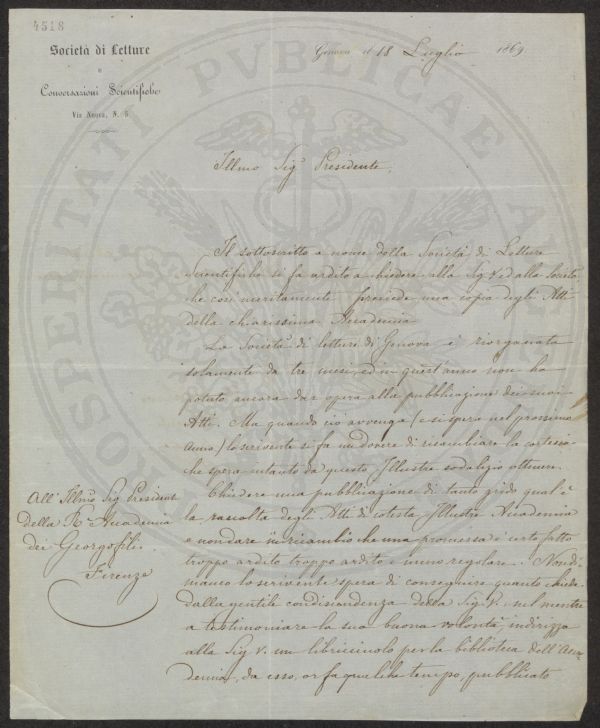 4518
Società di Letture
e
Conversazioni Scientifiche
Via Nuova, N. 5
Genova il 18 Luglio 1869
Illmo Sigr Presidente,
Il sottoscritto a nome della Società di Letture
Scientifiche si fa ardito a chiedere alla Sig V. ed alla Società
che così meritamente presiede una copia degli Atti
della chiarissima Accademia
La Società di letture di Genova è riorganata
solamente da tre mesi, ed in quest'anno non ha
potuto ancora dar opera alla pubblicazione dei suoi
Atti. Ma quando ciò avvenga (e si spera nel prossimo
anno) lo scrivente si fa un dovere di ricambiare la cortesia
che spera intanto da questo Illustre sodalizio ottenere.
Chiedere una pubblicazione di tanto grido qual'è
la raccolta degli Atti di cotesta Illustre Accademia
e non dare in ricambio che una promessa è certo fatto
troppo ardito troppo ardito e meno regolare. Nondi-
manco lo scrivente spera di conseguire quanto chiede
dalla gentile condiscendenza della Sig. V. nel mentre
a testimoniare la sua buona volontà indirizza
alla Sig V. un libriccinolo per la biblioteca dell'Acca-
demia, da esso, or fa qualche tempo, pubblicato
All' Illmo Sig Presidente
della R Accademia
dei Georgofili.
Firenze
PROSPERITATI PUBLICAE